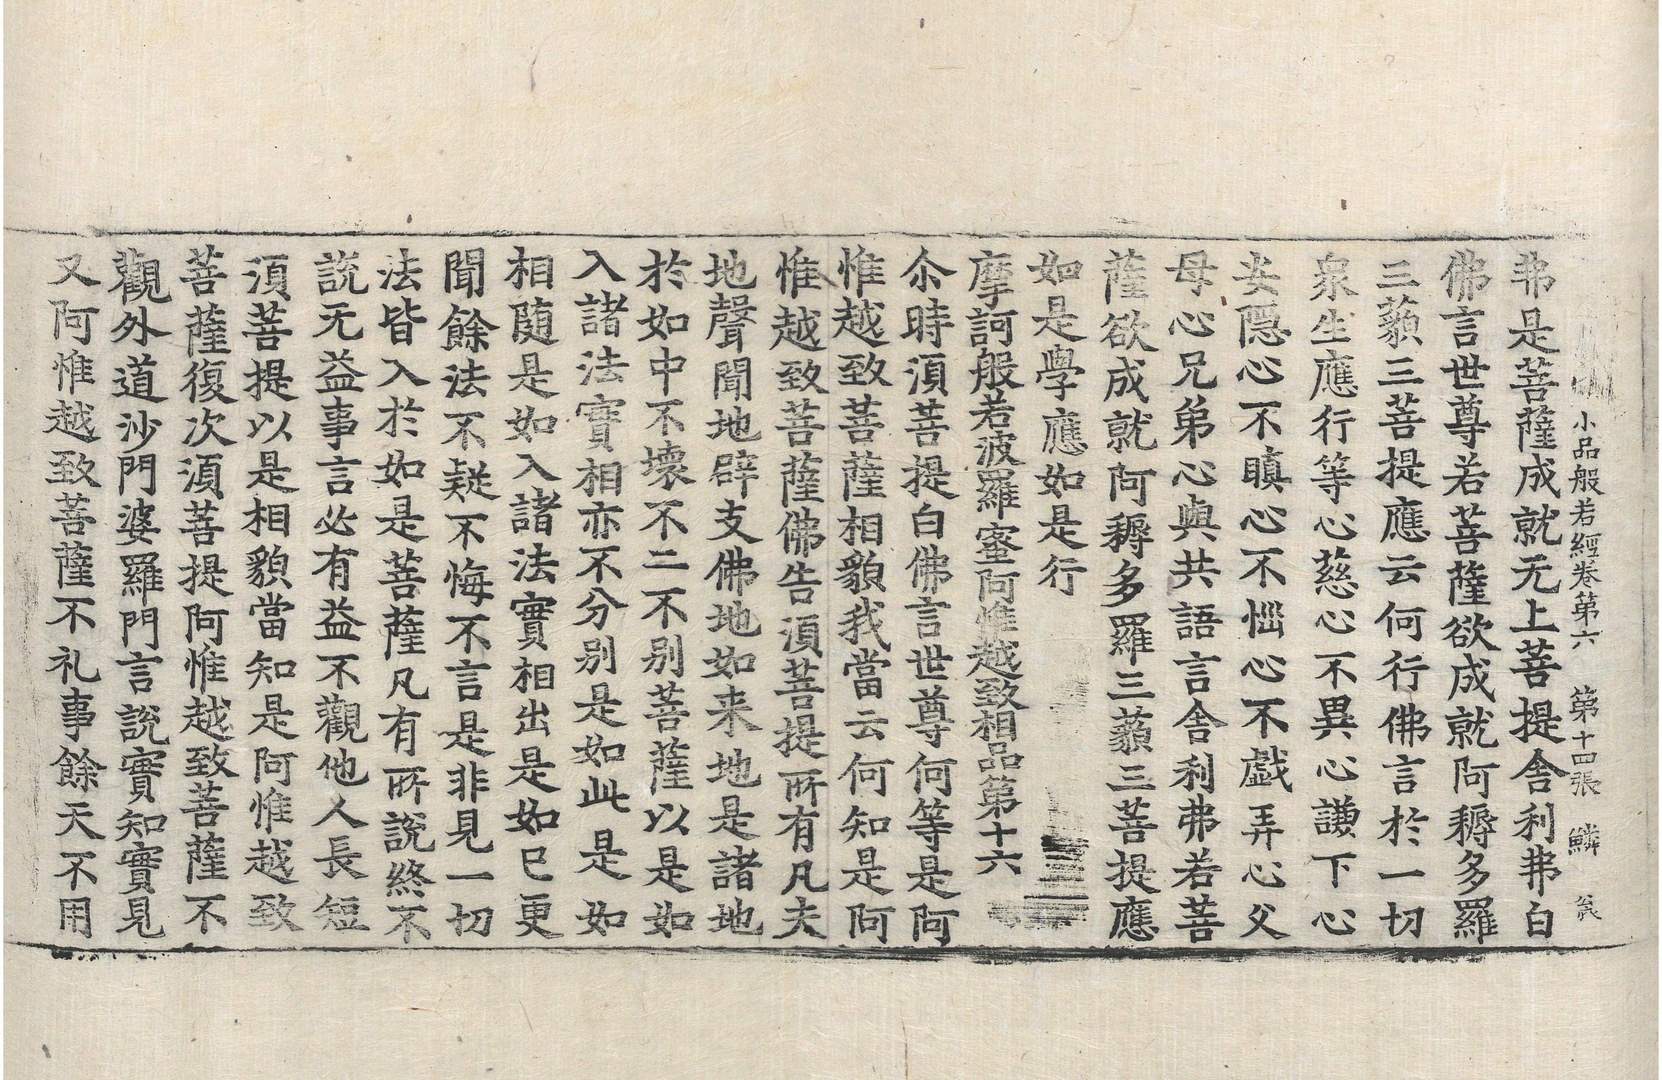 小品般若經卷第六 第十四張 鱗
弗是菩薩成就无上菩提舍利弗白
佛言世尊若菩薩欲成就阿耨多羅
三藐三菩提應云何行佛言於一切
衆生應行等心慈心不異心謙下心
安隱心不瞋心不惱心不戱弄心父
母心兄弟心與共語言舍利弗若菩
薩欲成就阿耨多羅三藐三菩提應
如是學應如是行
摩訶般若波羅蜜阿惟越致相品第十六
尒時湏菩提白佛言世尊何等是阿
惟越致菩薩相貌我當云何知是阿
惟越致菩薩佛告湏菩提所有凡夫
地聲聞地辟支佛地如来地是諸地
於如中不壞不二不别菩薩以是如
入諸法實相亦不分别是如此是如
相随是如入諸法實相出是如已更
聞餘法不疑不悔不言是非見一切
法皆入於如是菩薩凡有所說終不
說无益事言必有益不觀他人長短
湏菩提以是相貌當知是阿惟越致
菩薩復次湏菩提阿惟越致菩薩不
觀外道沙門婆羅門言說實知實見
又阿惟越致菩薩不礼事餘天不用